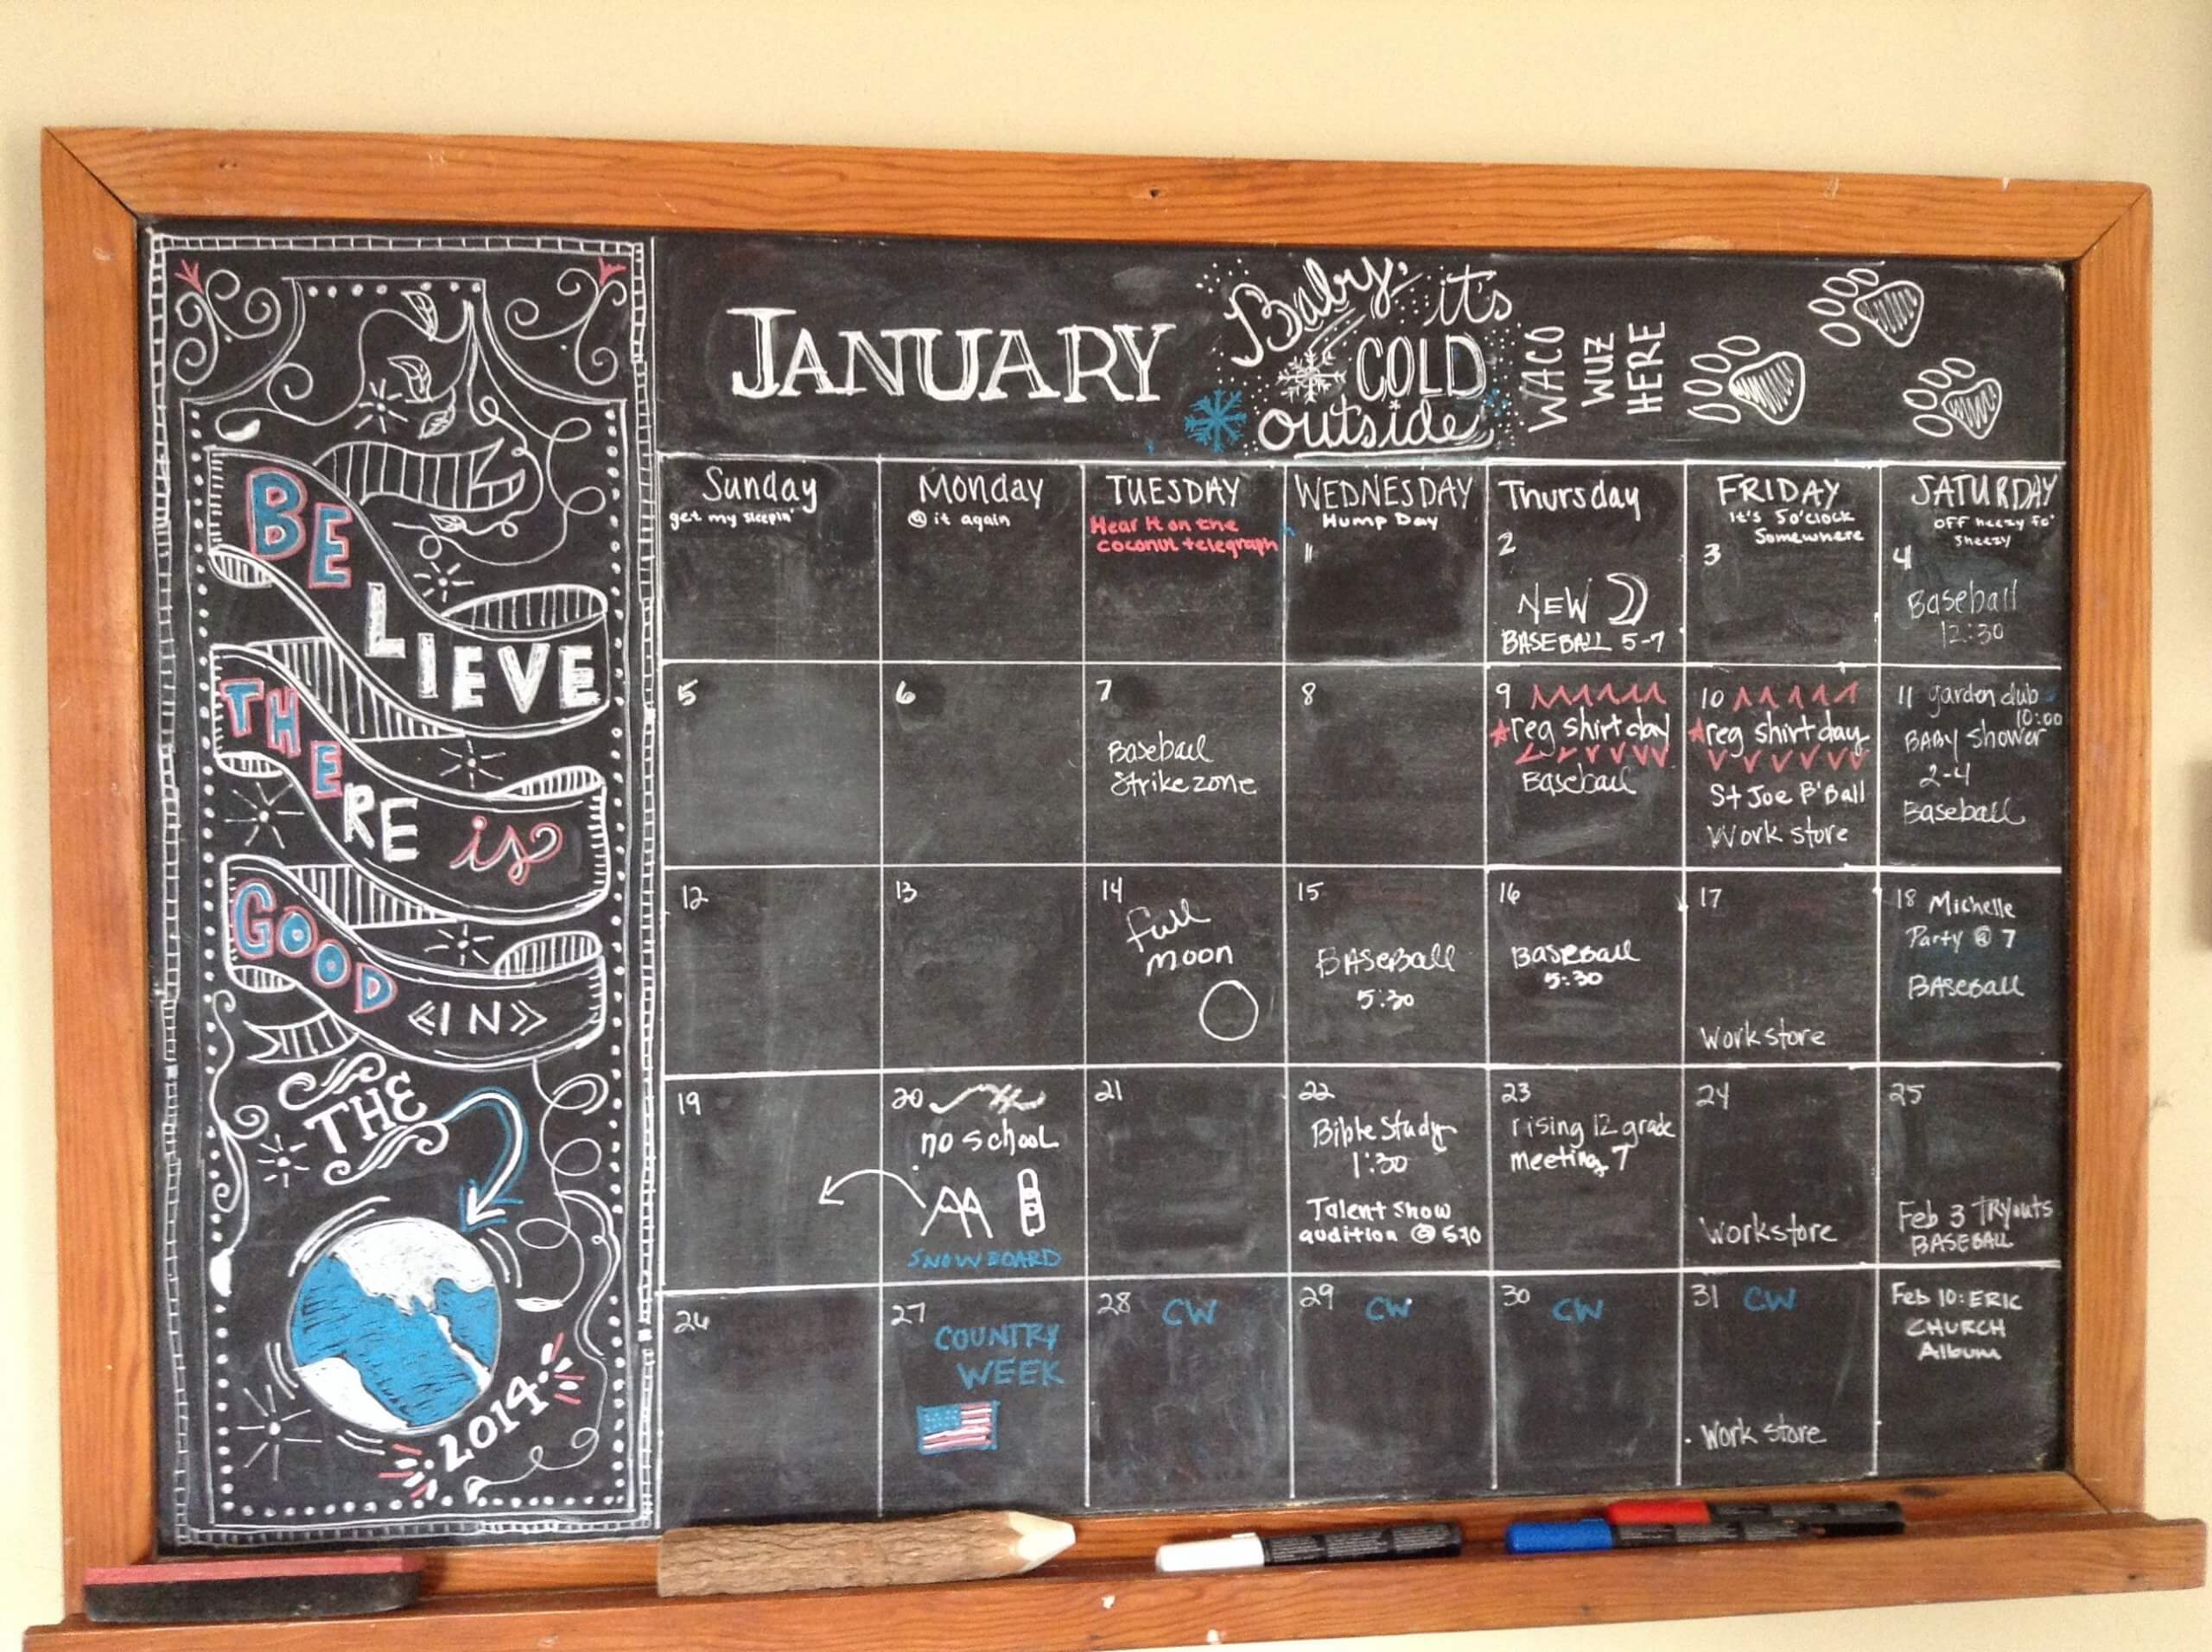 BE
LIEVE
THE
RE is
GOOD <<IN>>
THE
2014
JANUARY
Baby, it's
COLD
outside
WACO
WUZ
HERE
Sunday
get my sleepin'
Monday
@ it again
TUESDAY
Hear it on the
coconut telegraph
WEDNESDAY
Hump Day
1
Thursday
2
NEW
BASEBALL 5-7
FRIDAY
It's 5 o'clock
Somewhere
3
SATURDAY
OFF heezy fo'
Sheezy
4
Baseball
12:30
5
6
7
Baseball
Strikezone
8
9
reg shirt day
Baseball
10
reg shirt day
St Joe B'Ball
Work store
11 garden club
10:00
BABY Shower
2-4
Baseball
12
13
14
full
moon
15
BASEBALL
5:30
16
BASEBALL
5:30
17
Work store
18 Michelle
Party @ 7
BASEBALL
19
20
no school
SNOWBOARD
21
22
Bible Study
1:30
Talent Show
audition @ 530
23
rising 12 grade
meeting 7
24
Workstore
25
Feb 3 TRYouts
BASEBALL
26
27
COUNTRY
WEEK
28 CW
29 CW
30 CW
31 CW
Work store
Feb 10: ERIC
CHURCH
Album